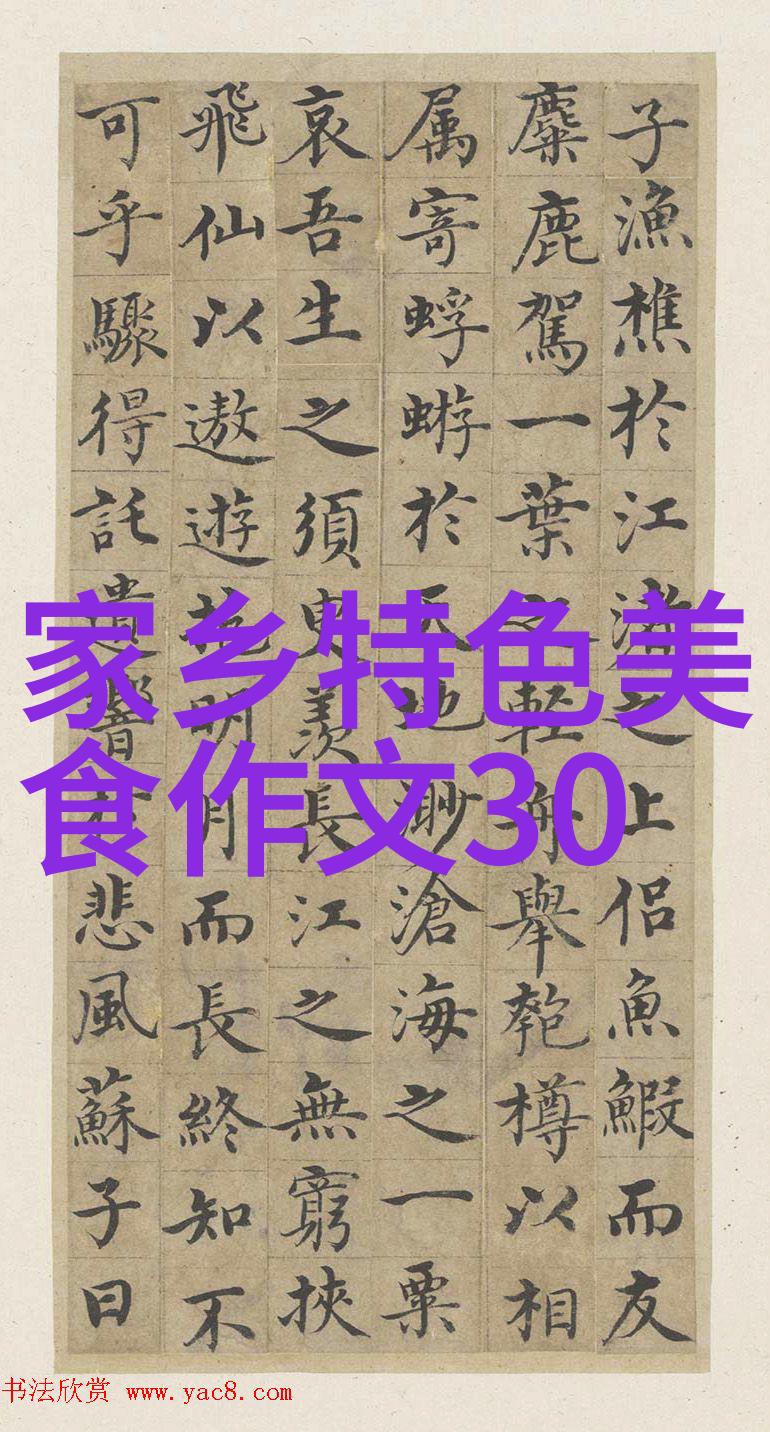 子漁樵於江渚之上侶魚鰕而友
麋鹿駕一葉之輕舟舉匏樽以相
属寄蜉蝣於天地渺滄海之一粟
哀吾生之須臾羨長江之無窮挾
飛仙以遨遊抱明月而長終知不
可乎驟得託遺響於悲風蘇子曰
家乡特色美
食作文30
书法欣赏 www.yac8.com